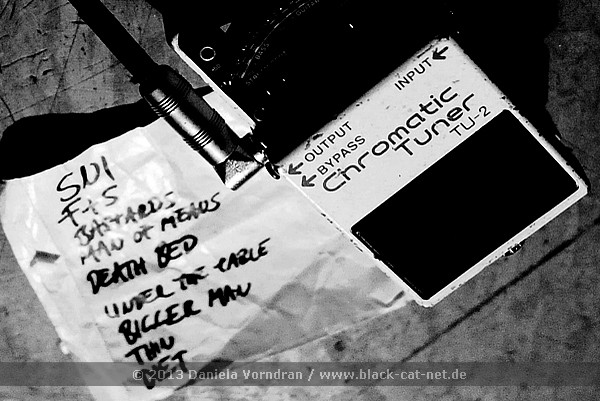 INPUT
OUTPUT
BYPASS
Chromatic
Tuner
TU-2
SNI
F+S
BASTARDS
MAN OF MEANS
DEATH BED
UNDER THE TABLE
BIGGER MAN
THIN
© 2013 Daniela Vorndran / www.black-cat-net.de